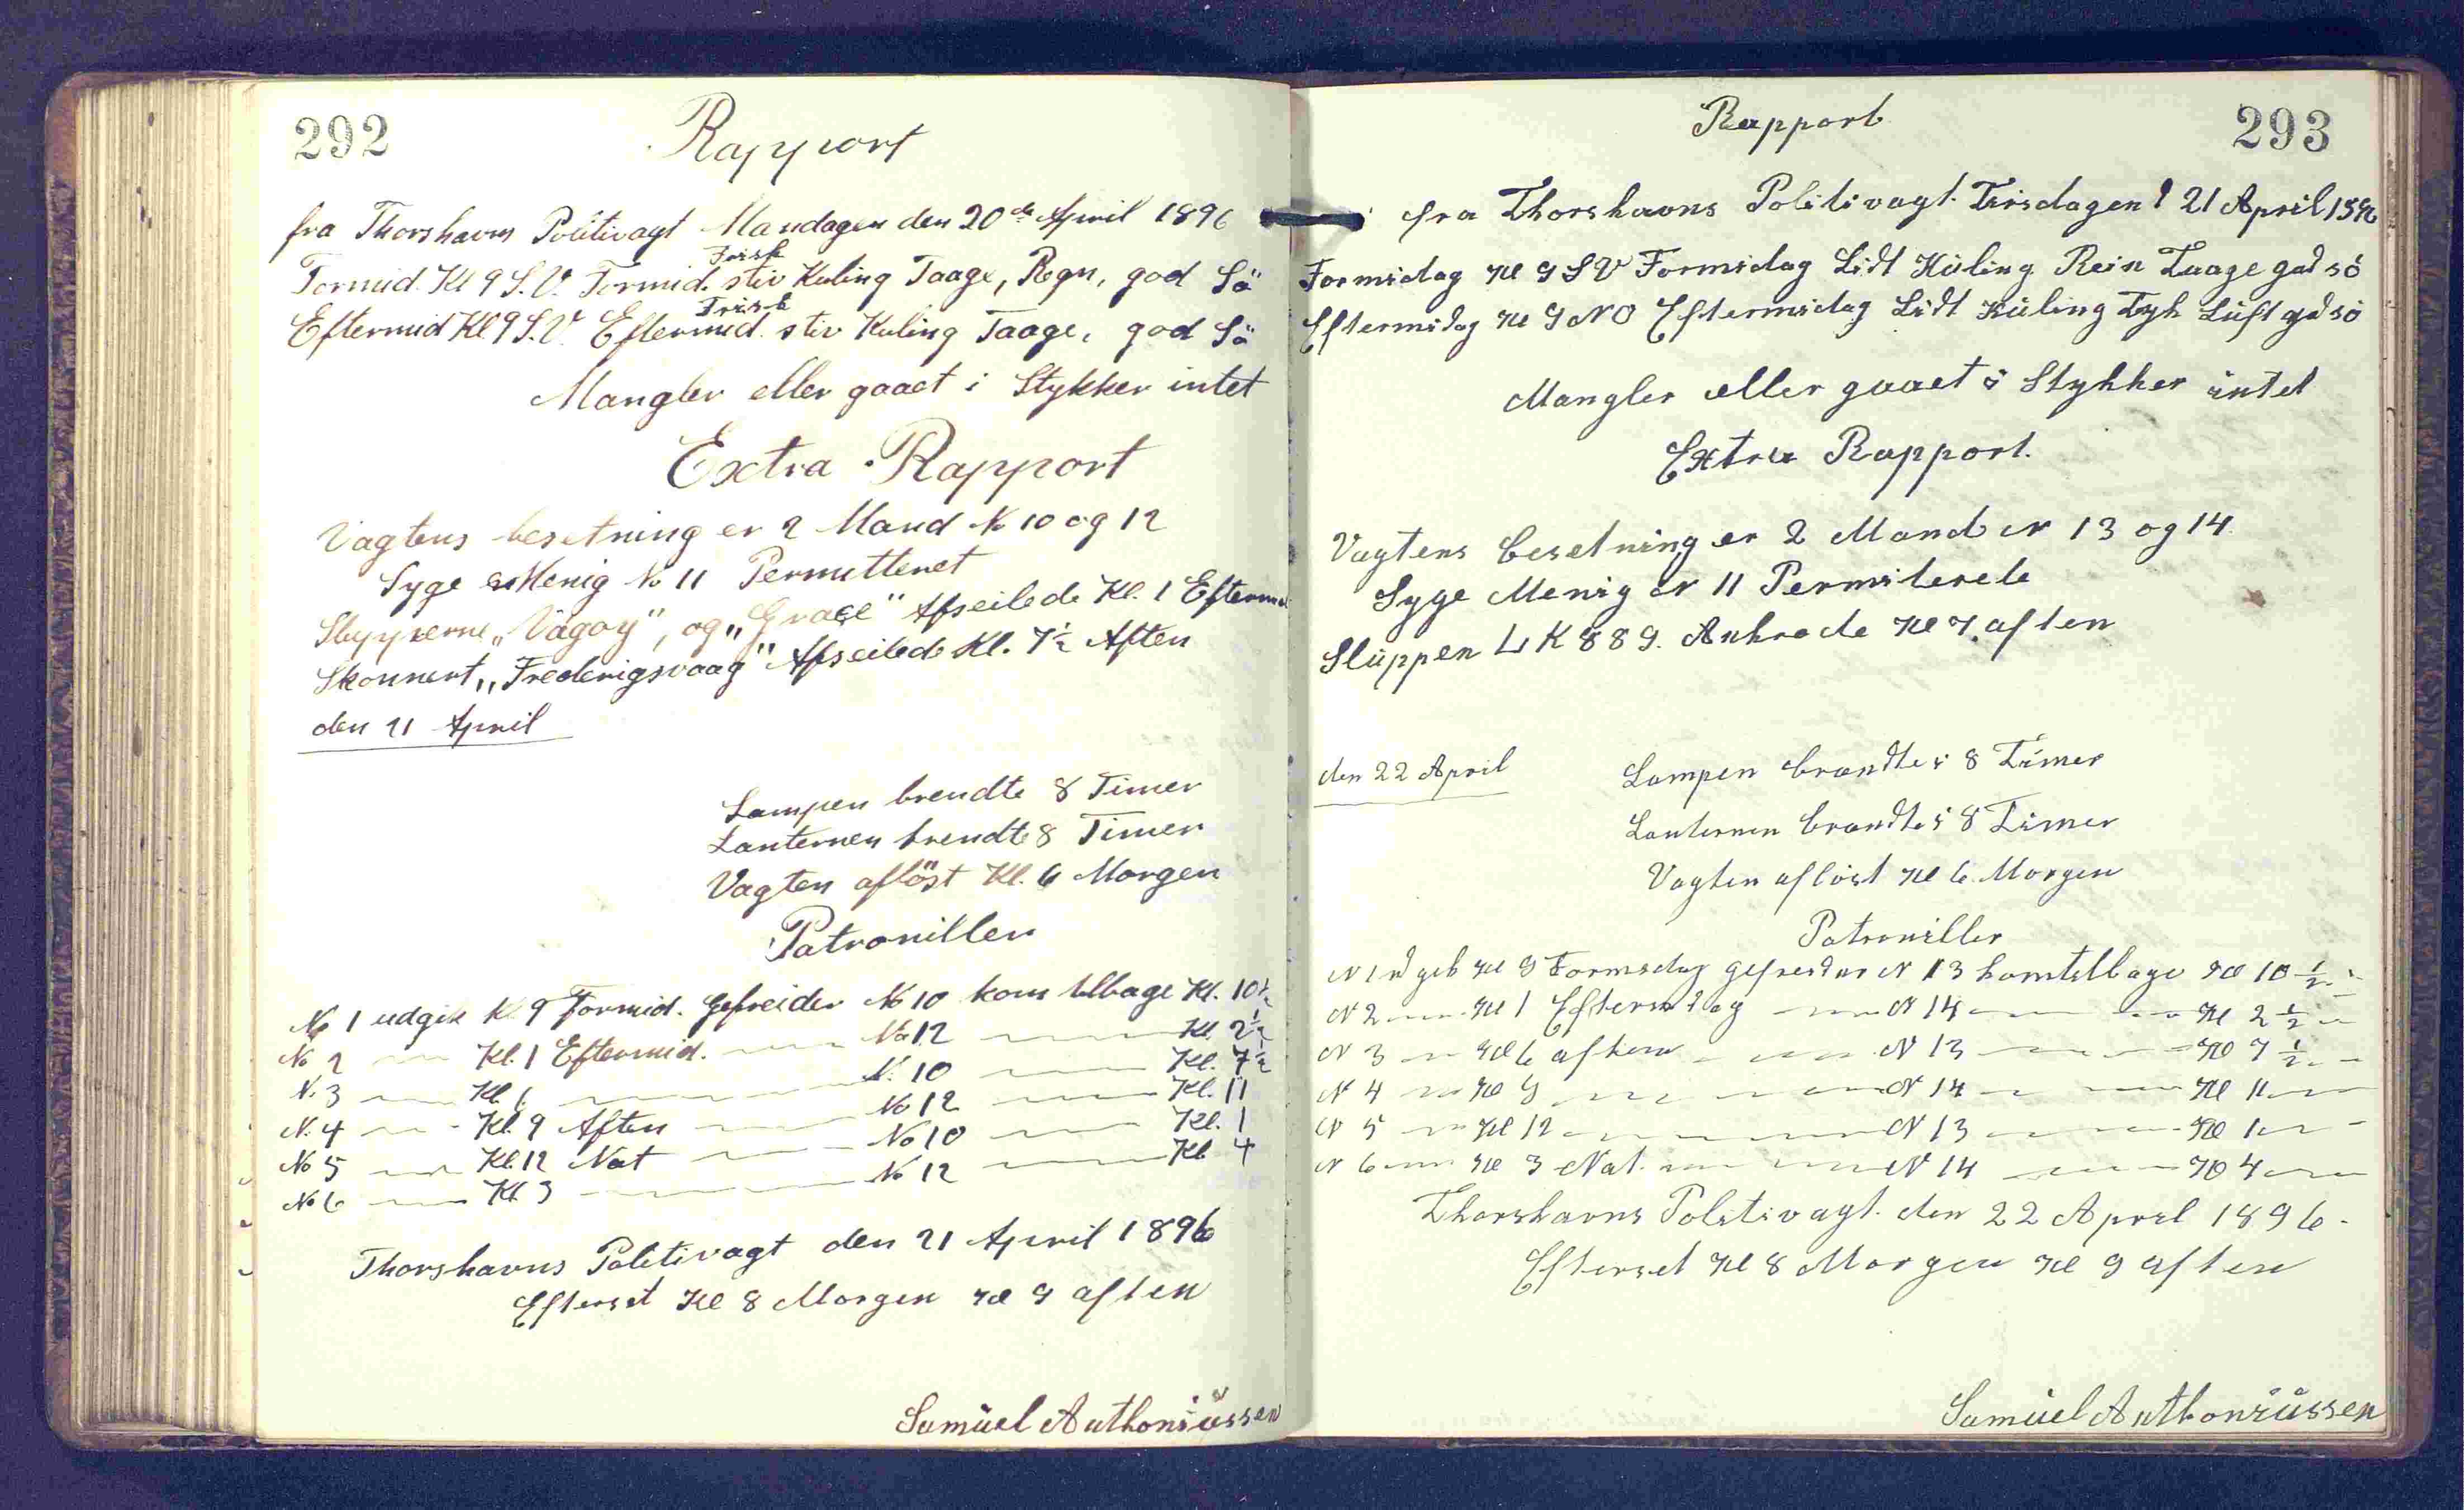 292
Rapport
fra Thorshavns Politivagt Mandagen den 20de April 1896
Frisk
Formid. Kl 9 S.V. Formid. stiv Kuling Taage, Regn, god Sö
Frisk
Eftermid Kl 9 S.V. Eftermid. stiv Kuling Taage, god Sö
Mangler eller gaaet i Stykker intet
Extra Rapport
Vagtens besetning er 2 Mand No 10 og 12
Syge Menig No 11 Permitteret
Slupperne „Vågoy", og „Grace" Afseilede Kl. 1 Eftermid
Skonnert „Frederigsvaag" Afseilede Kl. 7½ Aften
den 21 April
Lampen brendte 8 Timer
Lanternen brendte 8 Timer
Vagten aflöst Kl. 6 Morgen
Patrouiller
No 1 udgik Kl 9 Formid. Gefreider No 10 kom tilbage Kl. 10½
No 2 — Kl. 1 Eftermid. — No 12 — Kl. 2½
N. 3 — Kl 6 — N. 10 — Kl. 7½
N. 4 — Kl. 9 Aften — No 12 — Kl. 11
No 5 — Kl. 12 Nat — No 10 — Kl. 1
No 6 — Kl. 3 — No 12 — Kl 4
Thorshavns Politivagt den 21 April 1896
Efterset Kl 8 Morgen Kl 9 aften
Samuel Anthoniussen
293
Rapport
fra Thorshavns Politivagt. Tirsdagen d 21 April 1896
Formidag Kl 9 SV Formidag Lidt Kuling Rein Taage god sö
Eftermidag Kl 9 NO Eftermidag Lidt Kuling Tyk Luft god sö
Mangler eller gaaet i Stykker intet
Extra Rapport.
Vagtens besetning er 2 Mand N 13 og 14.
Syge Menig N 11 Permiterete
Sluppen LK 889. Ankrede Kl 7 aften
den 22 April
Lampen brændte i 8 Timer
Lanternen brændte i 8 Timer
Vagten aflöst Kl 6 Morgen
Patruiller
N 1 ud geik Kl 9 Formidag gefreider N 13 komtilbage Kl 10 ½
N 2 — Kl 1 Eftermidag — N 14 — Kl 2 ½
N 3 — Kl 6 aften — N 13 — Kl 7 ½
N 4 — Kl 9 — N 14 — Kl 11
N 5 — Kl 12 — N 13 — Kl 1
N 6 — Kl 3 Nat. — N 14 — Kl 4
Thorshavns Politivagt. den 22 April 1896.
Efterset Kl 8 Morgen Kl 9 aften
Samuel Anthoniussen